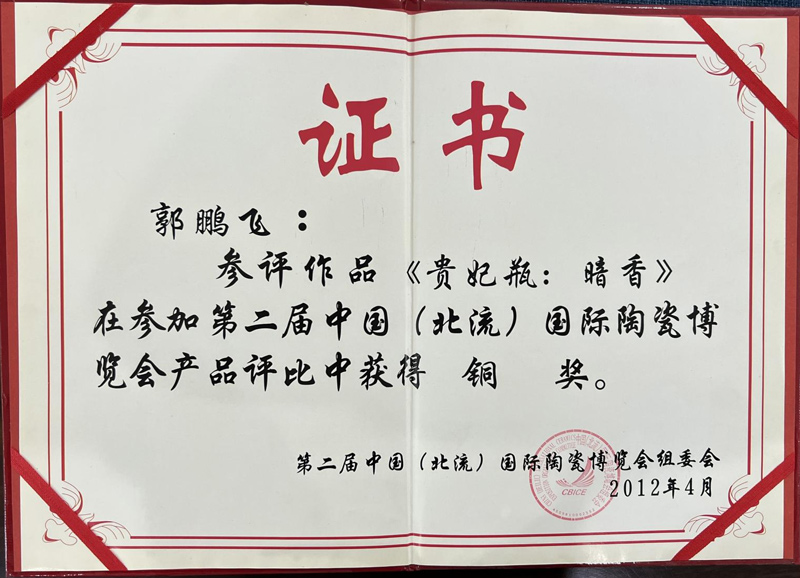 证书
郭鹏飞：
参评作品《贵妃瓶：暗香》
在参加第二届中国（北流）国际陶瓷博
览会产品评比中获得 铜 奖。
第二届中国（北流）国际陶瓷博览会组委会
2012年4月
CBICE